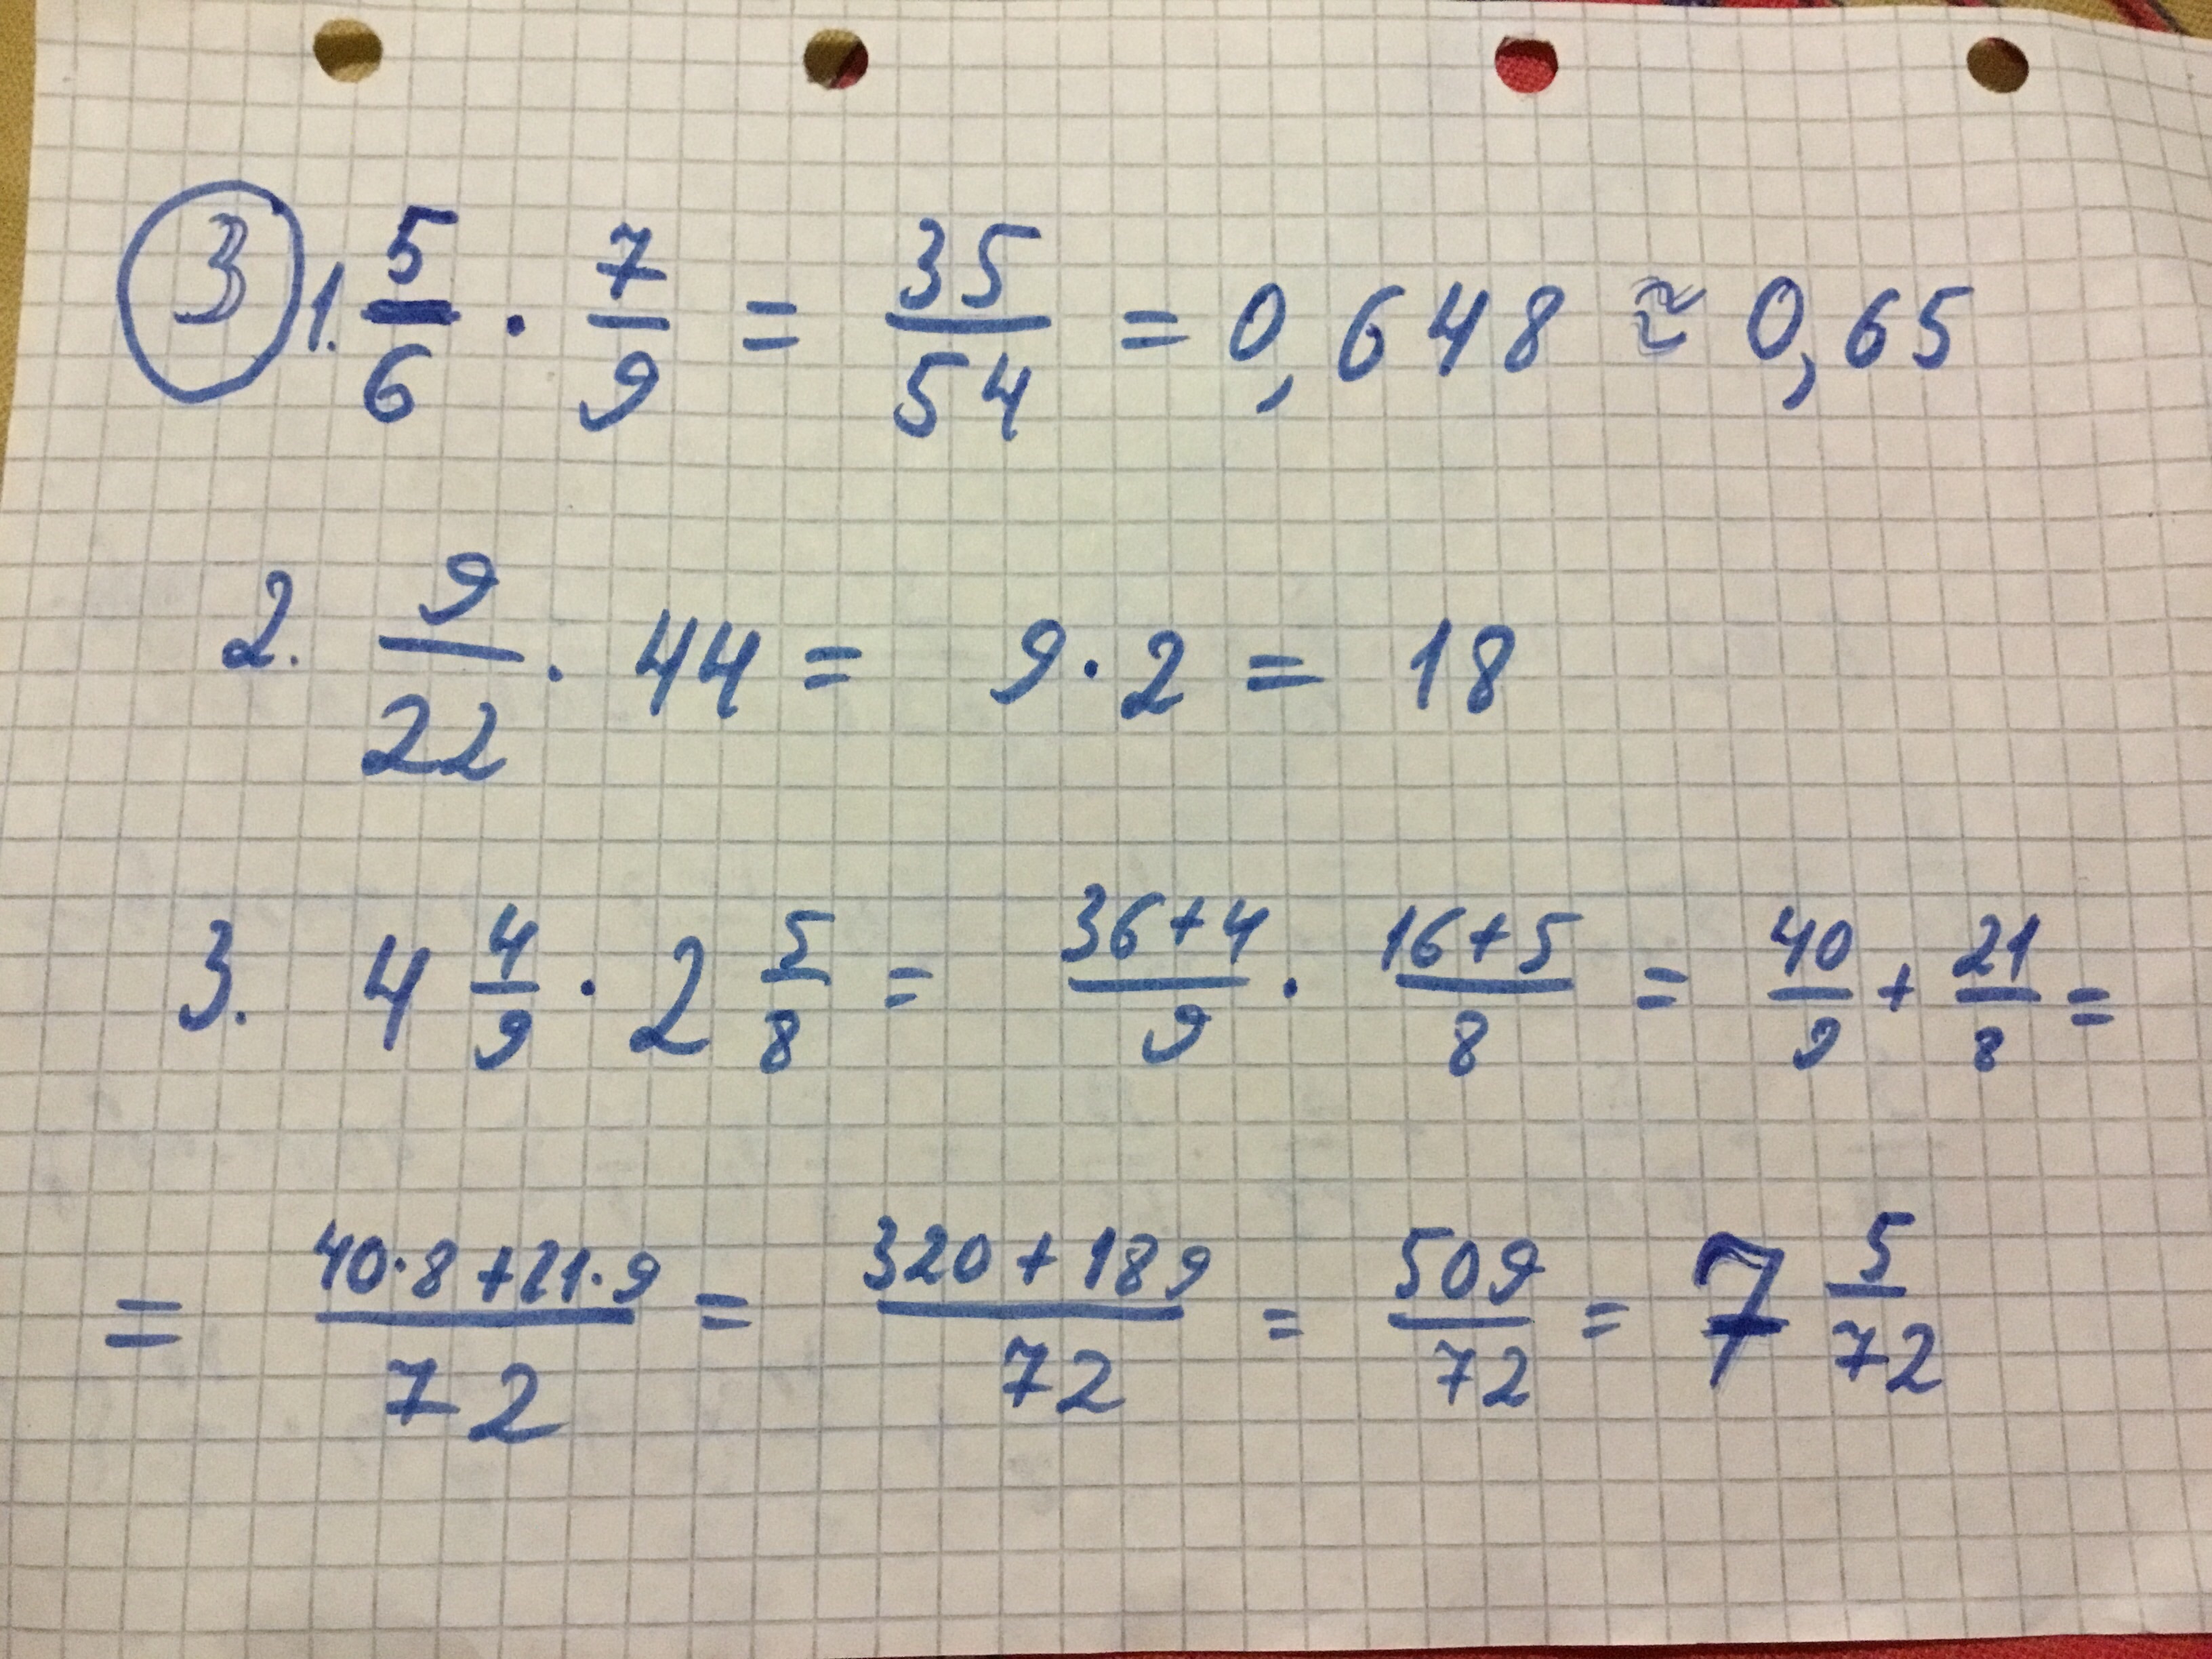 3 1. 5/6 · 7/9 = 35/54 = 0,648 ≈ 0,65
2. 9/22 · 44 = 9 · 2 = 18
3. 4 4/9 · 2 5/8 = 36+4/9 · 16+5/8 = 40/9 + 21/8 =
= 40·8+21·9/72 = 320+189/72 = 509/72 = 7 5/72